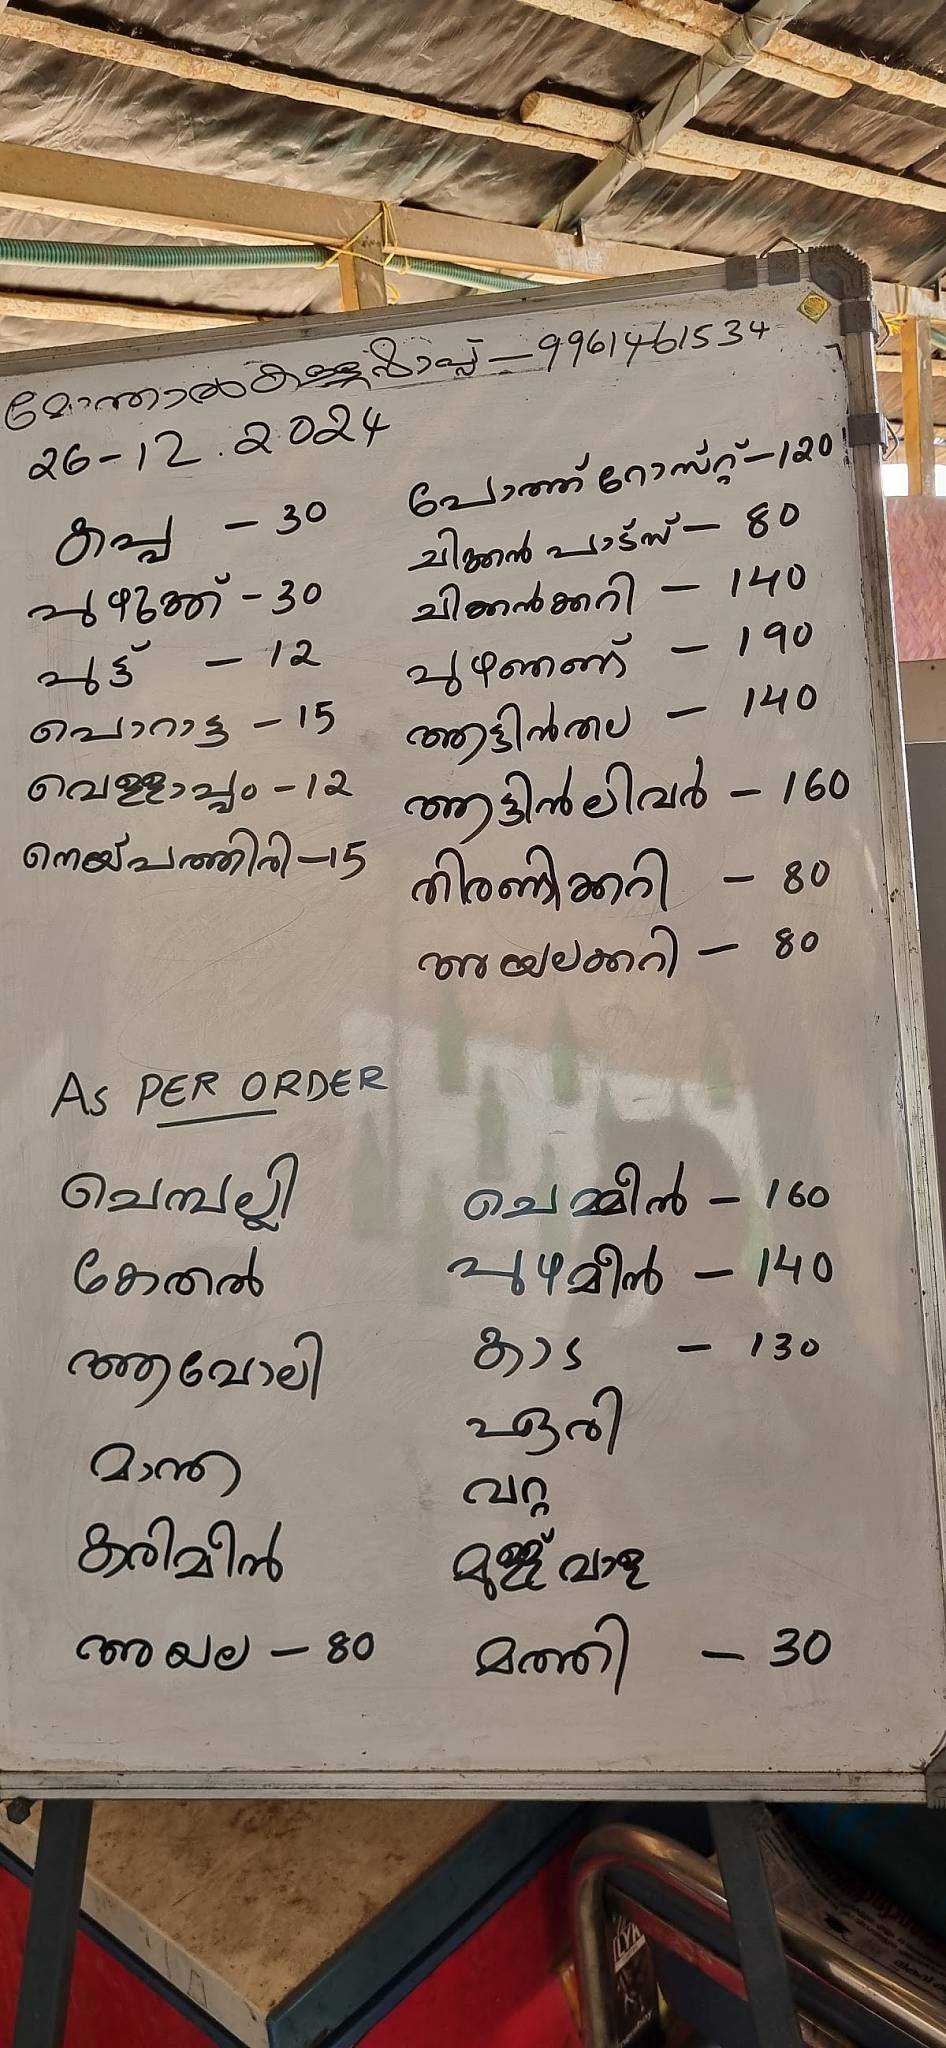 മോന്താൽ കള്ള്ഷാപ്പ് - 9961461534
26-12.2024
കപ്പ - 30
പുഴുത്ത് - 30
പുട്ട് - 12
പൊറാട്ട - 15
വെള്ളാപ്പം - 12
നെയ്പത്തിരി - 15
പോത്ത് റോസ്റ്റ് - 120
ചിക്കൻ പാട്സ് - 80
ചിക്കൻക്കറി - 140
പുഴഞണ്ട് - 190
ആട്ടിൻതല - 140
ആട്ടിൻ ലിവർ - 160
തിരണ്ടിക്കറി - 80
അയലക്കറി - 80
As PER ORDER
ചെമ്പല്ലി
കേതൽ
ആവോലി
മാന്ത
കരിമീൻ
അയല - 80
ചെമ്മീൻ - 160
പുഴമീൻ - 140
കാട - 130
ഏരി
വറ്റ
മുള്ള് വാള
മത്തി - 30